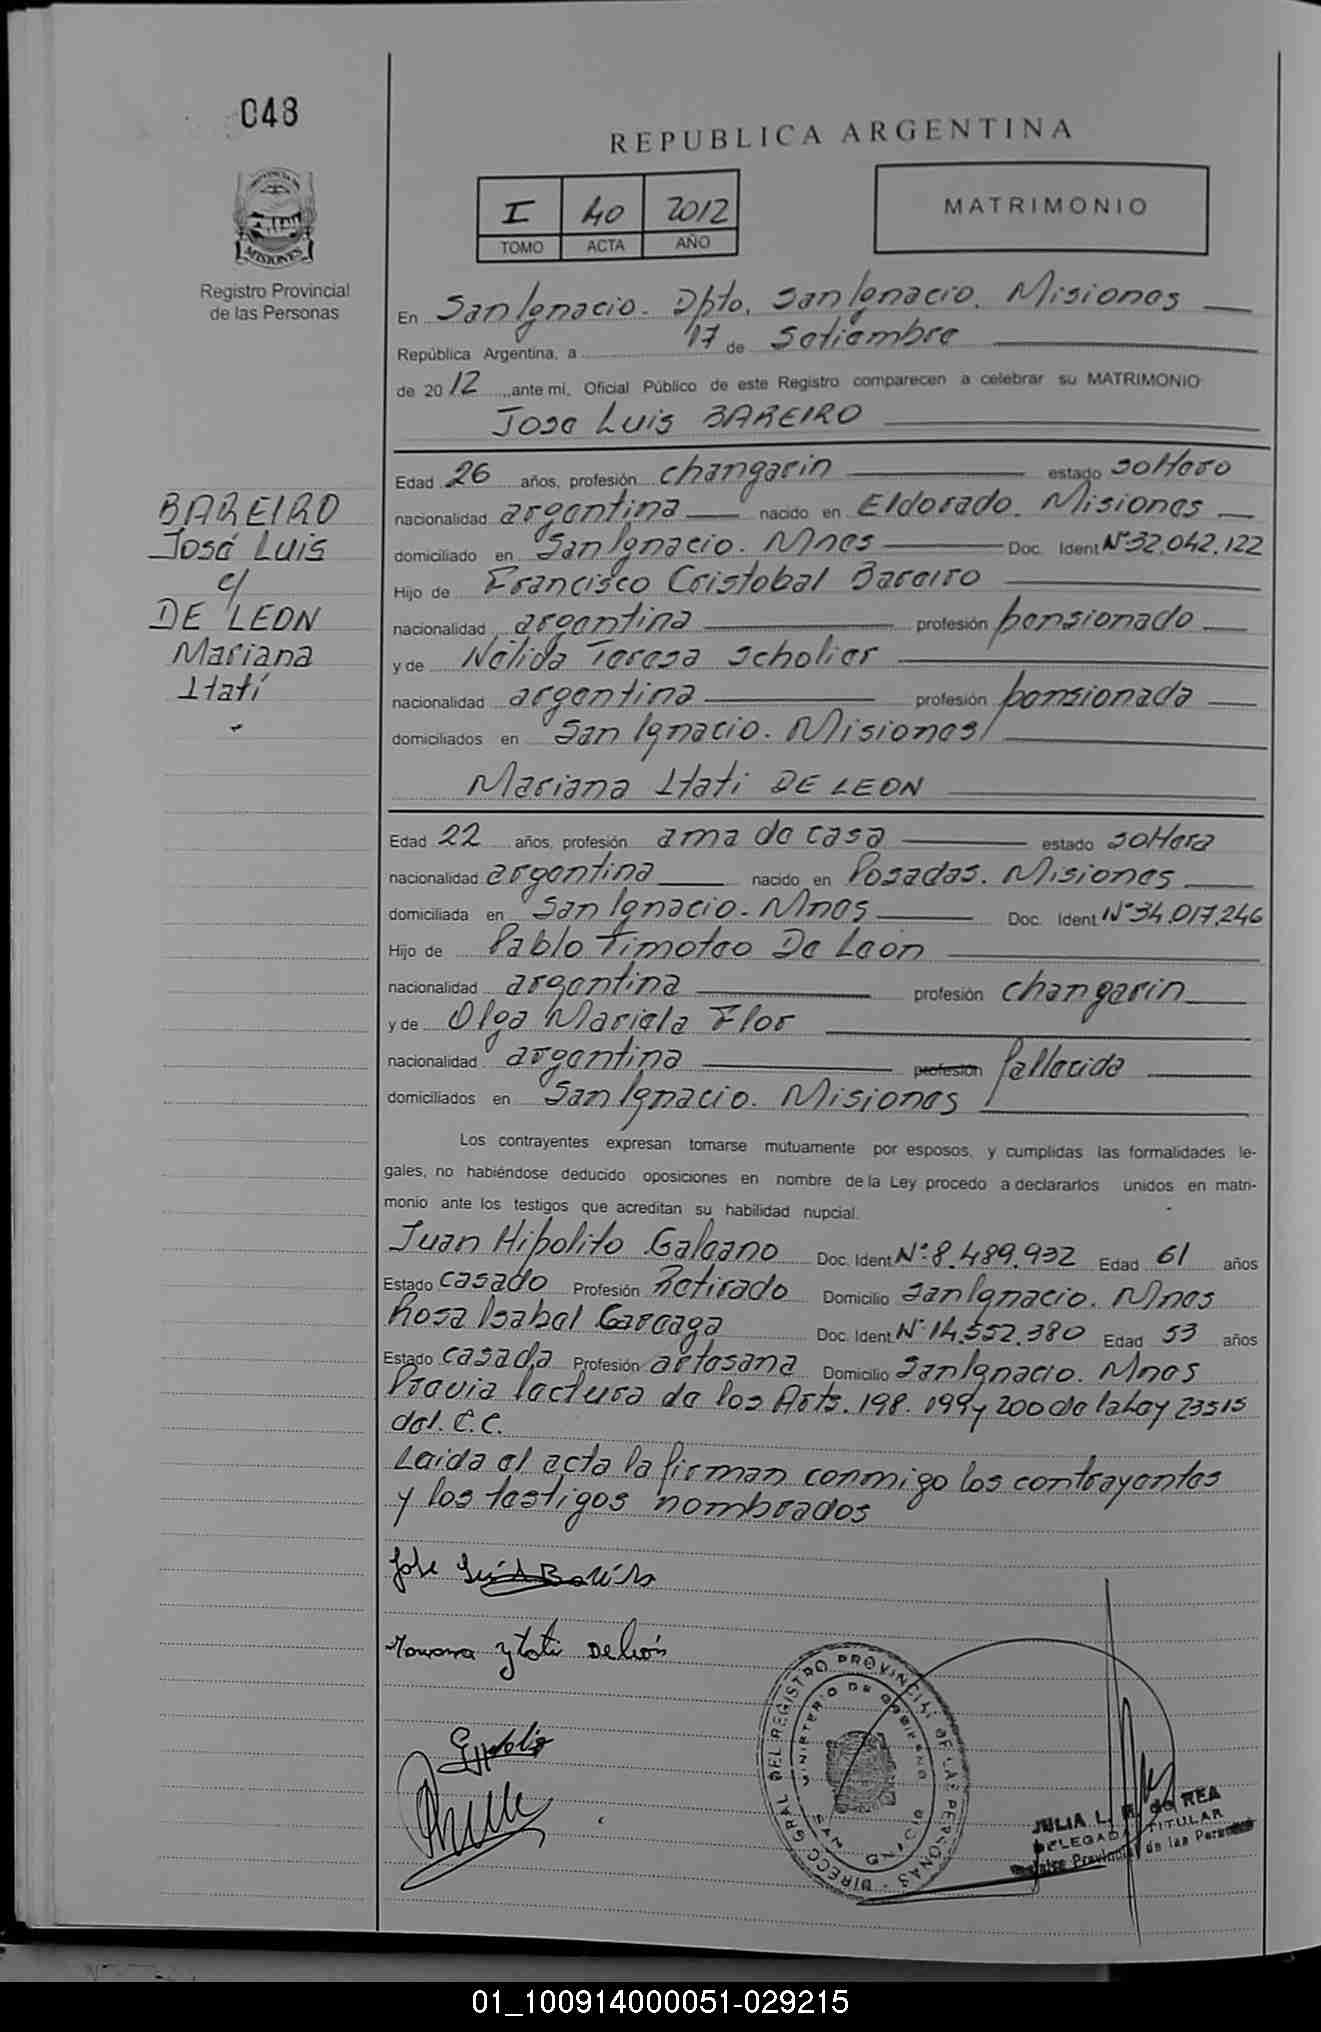 048
REPUBLICA ARGENTINA
I 40 2012
TOMO ACTA AÑO
MATRIMONIO
PROVINCIA DE
MISIONES
Registro Provincial
de las Personas
En San Ignacio. Dpto. San Ignacio. Misiones
República Argentina, a 17 de Setiembre
de 2012, ante mi, Oficial Público de este Registro comparecen a celebrar su MATRIMONIO
Jose Luis BAREIRO
Edad 26 años, profesión changarin estado soltero
nacionalidad argentina nacido en Eldorado. Misiones
domiciliado en San Ignacio. Mnes Doc. Ident Nº 32.042.122
Hijo de Francisco Cristobal Bareiro
nacionalidad argentina profesión pensionado
y de Nélida Teresa Scholler
nacionalidad argentina profesión pensionada
domiciliados en San Ignacio. Misiones
BAREIRO
José Luis
c/
DE LEON
Mariana
Itatí
Mariana Itati DE LEON
Edad 22 años, profesión ama de casa estado soltera
nacionalidad argentina nacido en Posadas. Misiones
domiciliada en San Ignacio. Mnes Doc. Ident Nº 34.017.246
Hijo de Pablo Timoteo De Leon
nacionalidad argentina profesión changarin
y de Olga Mariela Flor
nacionalidad argentina profesión fallecida
domiciliados en San Ignacio. Misiones
Los contrayentes expresan tomarse mutuamente por esposos, y cumplidas las formalidades le-
gales, no habiéndose deducido oposiciones en nombre de la Ley procedo a declararlos unidos en matri-
monio ante los testigos que acreditan su habilidad nupcial.
Juan Hipolito Galeano Doc. Ident Nº 8.489.932 Edad 61 años
Estado casado Profesión Retirado Domicilio San Ignacio. Mnes
Rosa Isabel Gareaga Doc. Ident Nº 14.552.380 Edad 53 años
Estado casada Profesión artesana Domicilio San Ignacio. Mnes
Previa lectura de los Arts. 198. 199 y 200 de la Ley 23515
del. C.C.
Leida el acta la firman conmigo los contrayentes
y los testigos nombrados
Jose Luis
Mariana Ytati De León
DIRECC GRAL DEL REGISTRO PROVINCIAL DE LAS PERSONAS
MINISTERIO DE GOBIERNO
SAN IGNACIO
JULIA L. R. de REA
DELEGADA TITULAR
Registro Provincial de las Personas
01_100914000051-029215